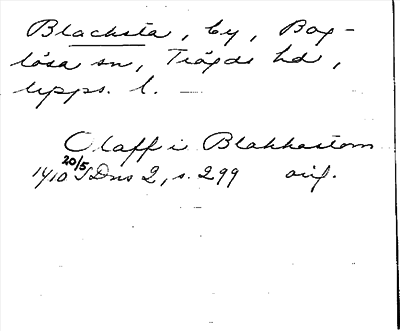 Blacksta, by, Box-
lösa sn, Trögds hd,
Upps. l.
Olaff i Blakkastom
20/5
1410 SDns 2, s. 299 orig.